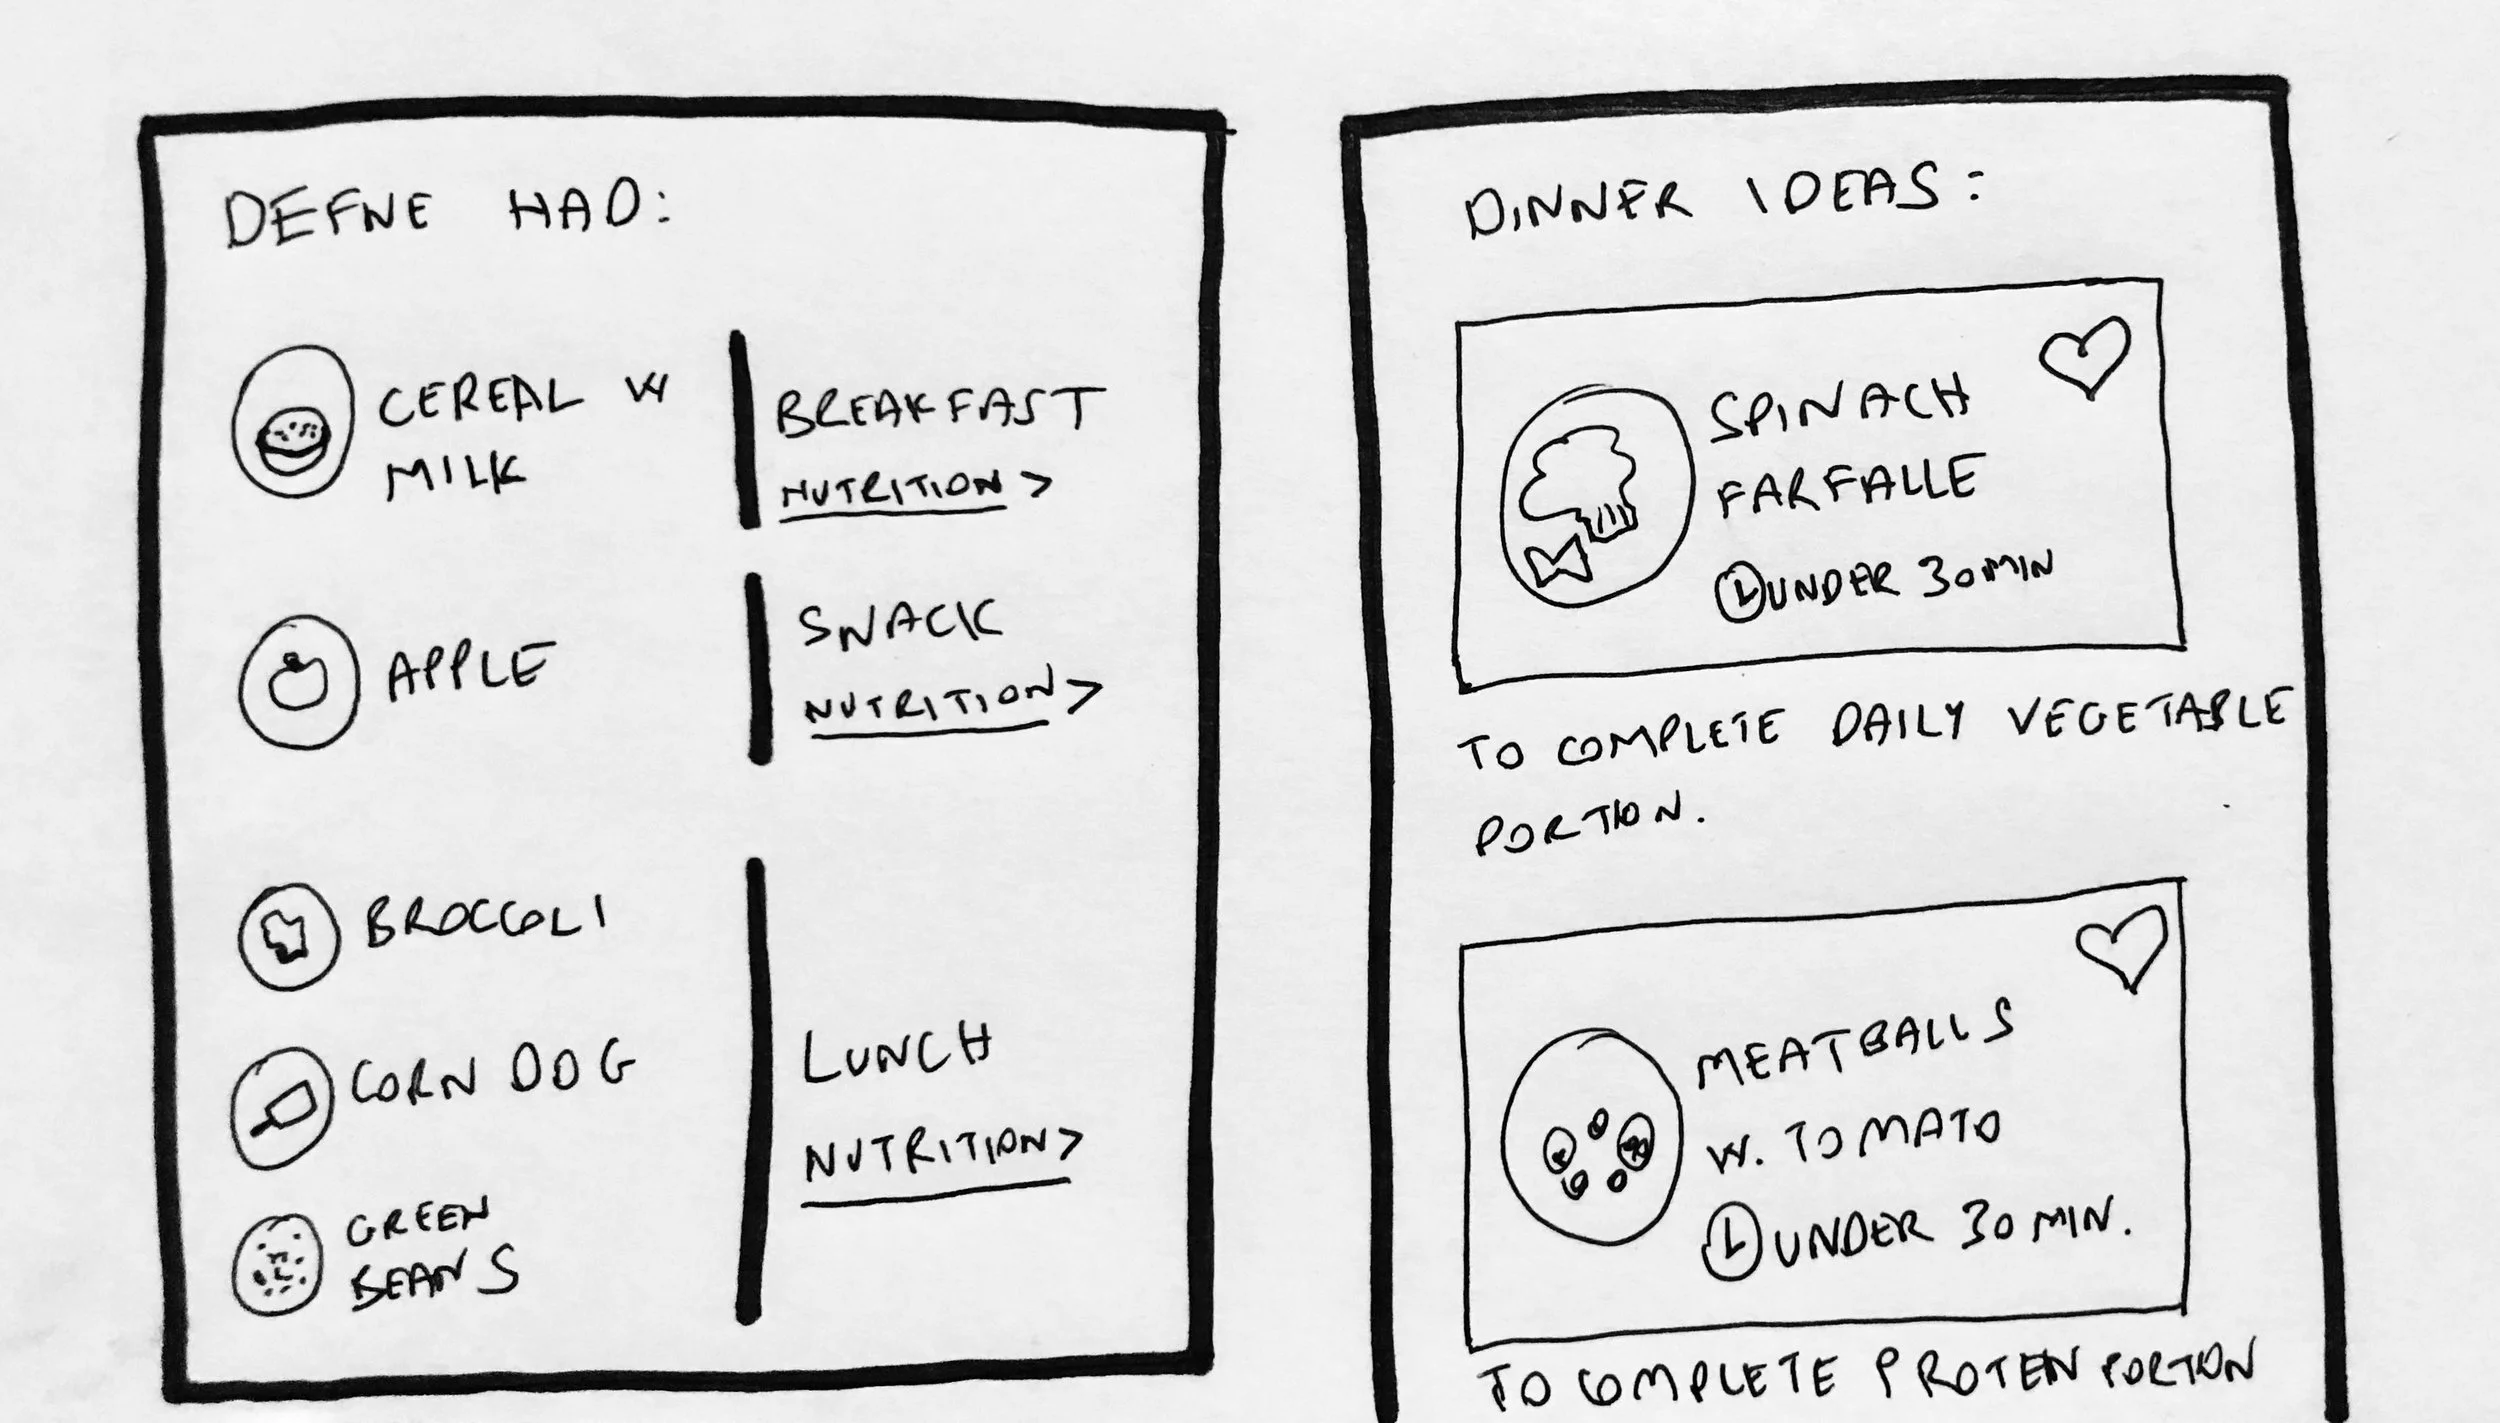 DEFNE HAD:
CEREAL W
MILK
BREAKFAST
NUTRITION >
APPLE
SNACK
NUTRITION >
BROCCOLI
CORN DOG
GREEN
BEANS
LUNCH
NUTRITION >
DINNER IDEAS:
SPINACH
FARFALLE
UNDER 30 MIN
TO COMPLETE DAILY VEGETABLE
PORTION.
MEATBALLS
W. TOMATO
UNDER 30 MIN.
TO COMPLETE PROTEN PORTION